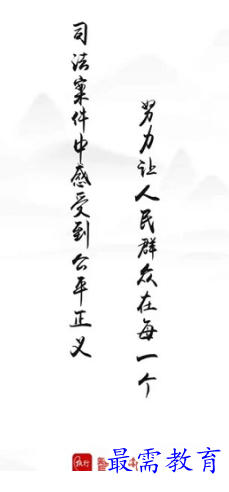 努力让人民群众在每一个
司法案件中感受到公平正义
执行
最需教育